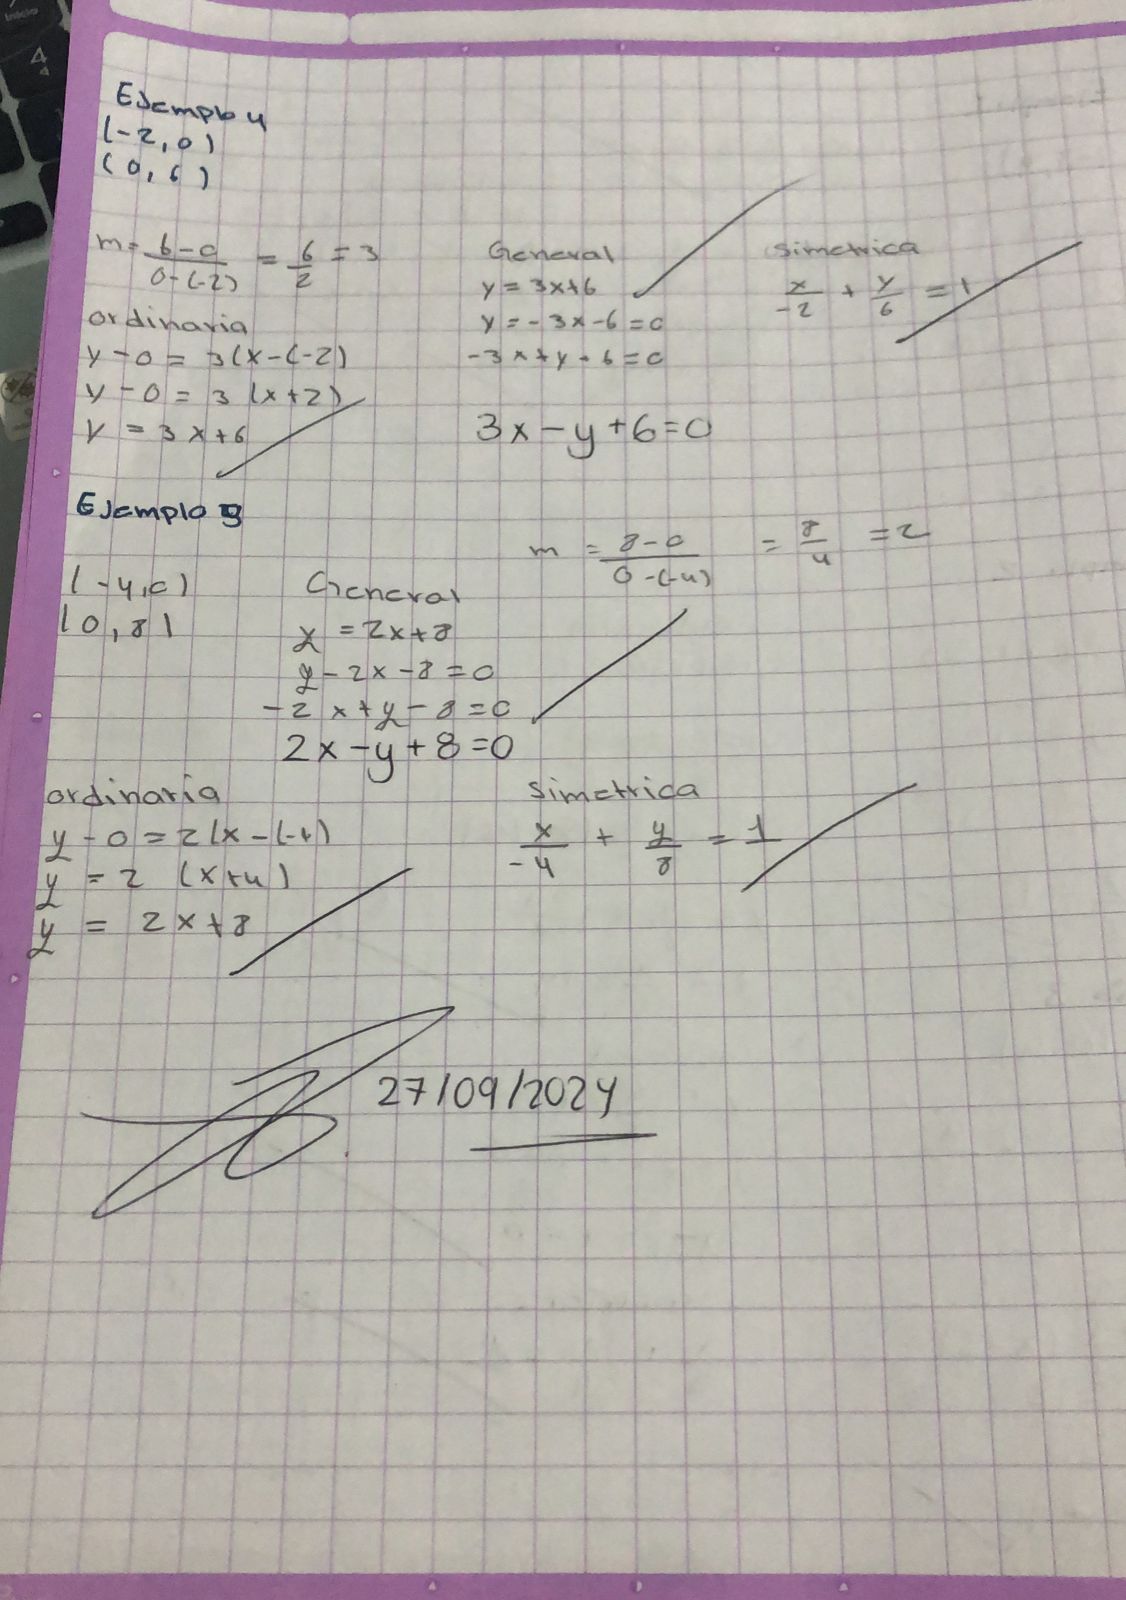 Inicio
4
Ejemplo 4
(-2,0)
(0,6)
m= 6-0 / 0-(-2) = 6/2 = 3
ordinaria
y-0 = 3(x-(-2)
y-0 = 3 (x+2)
y = 3x+6
General
y = 3x+6
y = -3x-6=0
-3x+y-6=0
3x-y+6=0
simetrica
x/-2 + y/6 = 1
Ejemplo 5
(-4,0)
(0,8)
m = 8-0 / 0-(-4) = 8/4 = 2
General
y = 2x+8
y-2x-8=0
-2x+y-8=0
2x-y+8=0
ordinaria
y-0=2(x-(-4)
y = 2 (x+4)
y = 2x+8
simetrica
x/-4 + y/8 = 1
27/09/2024